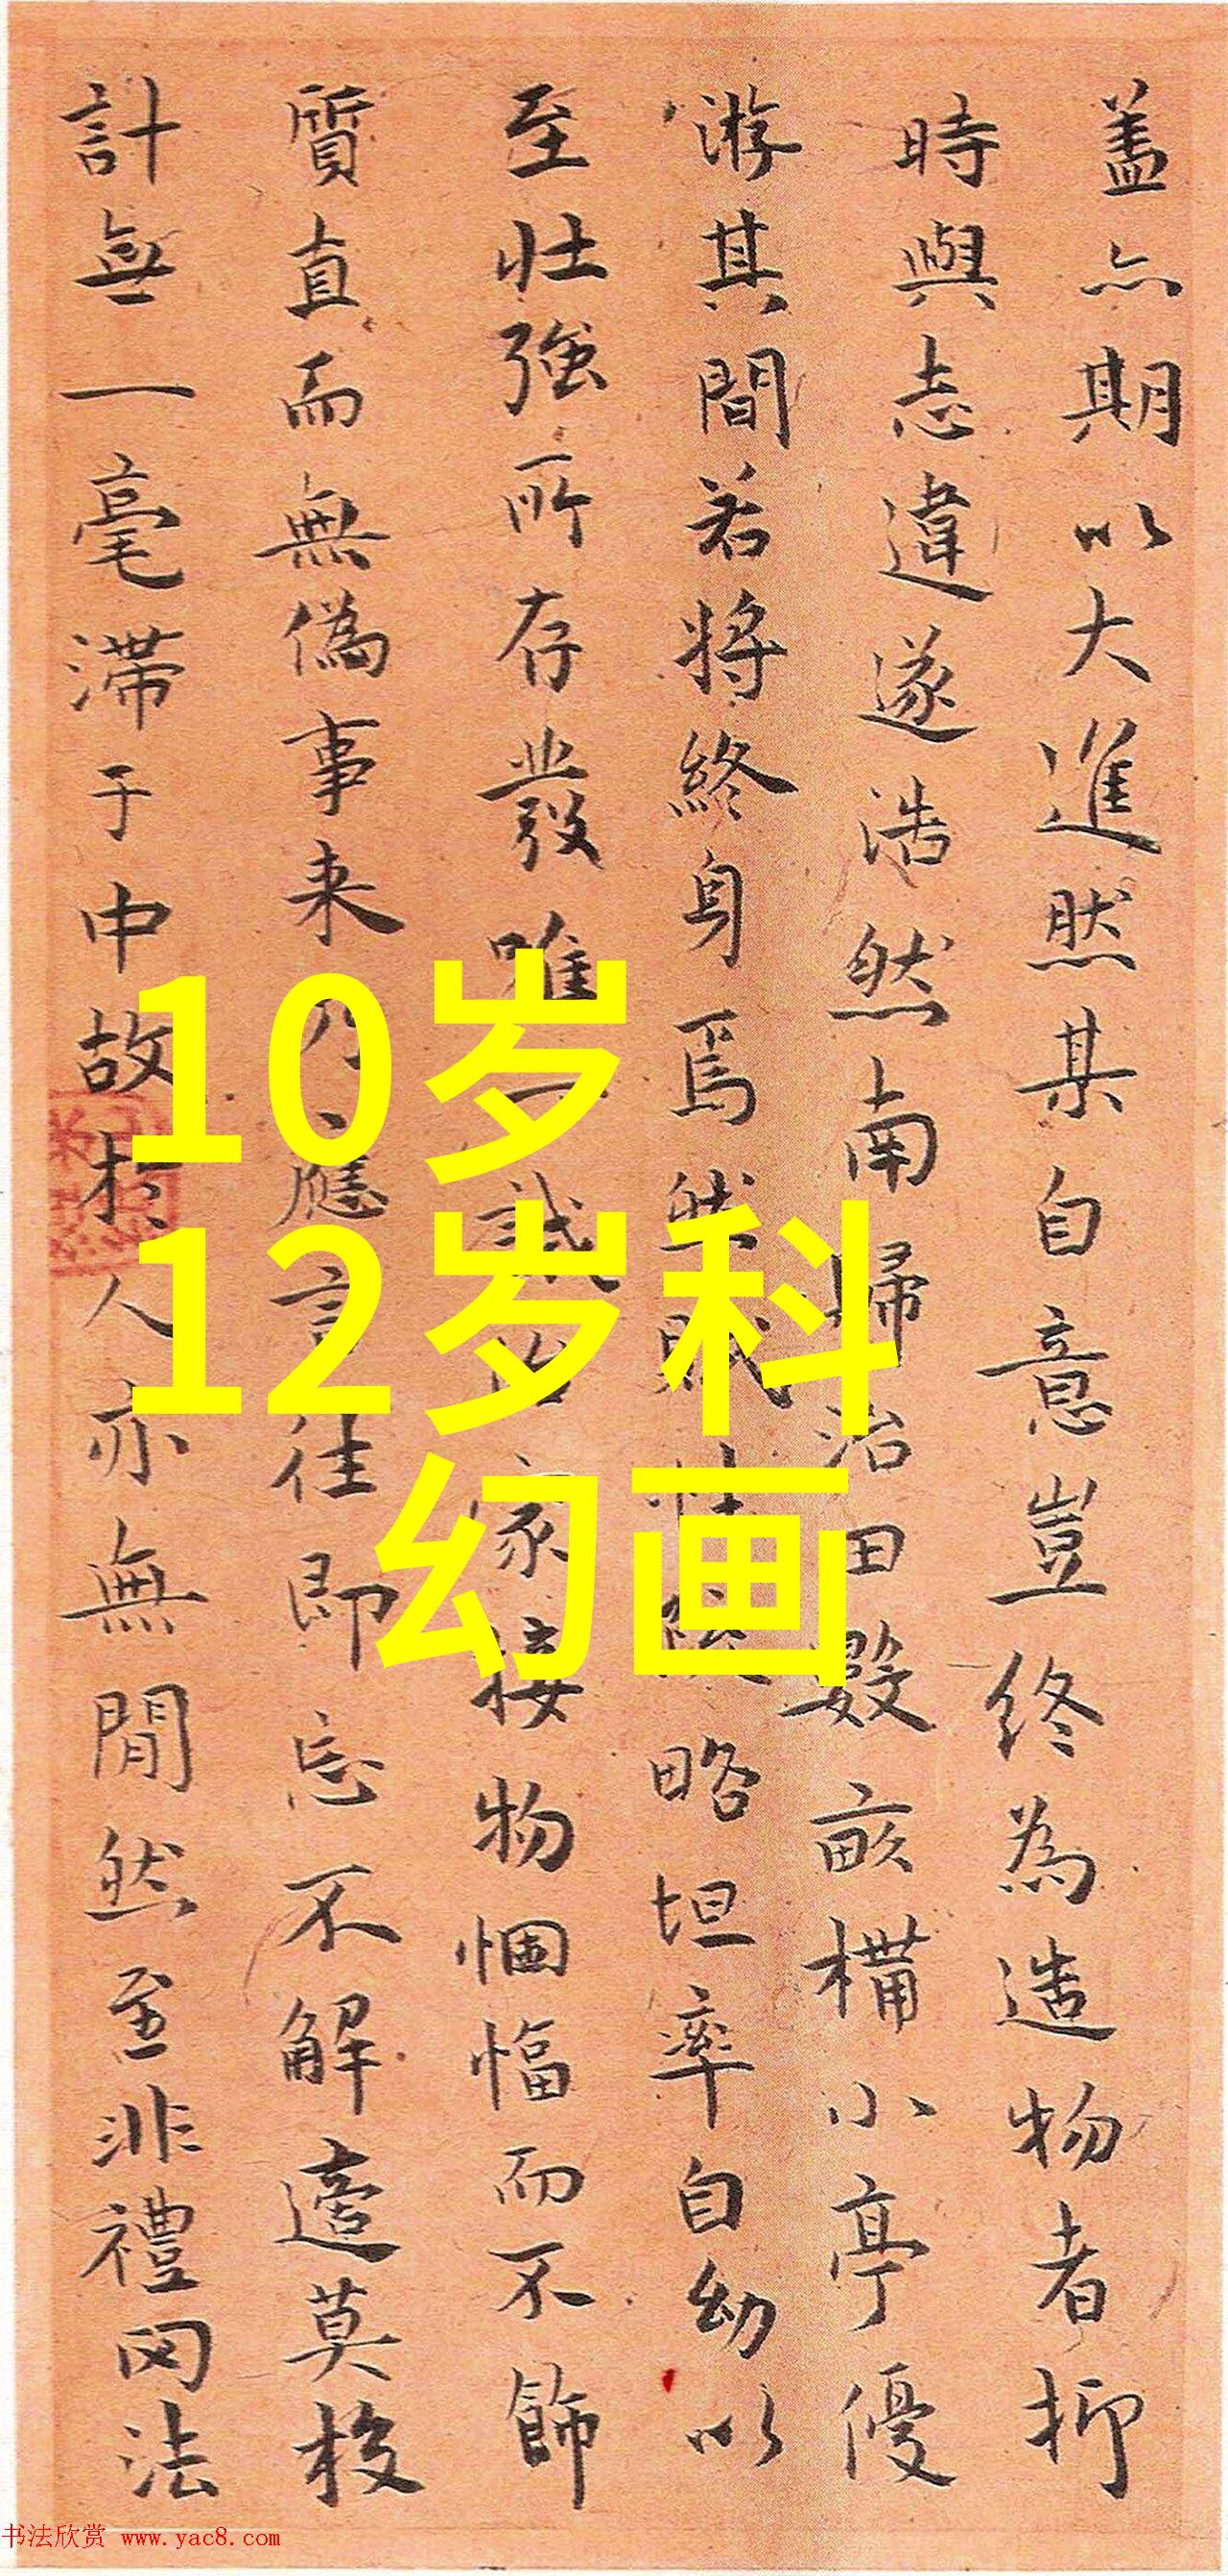 盖亦期以大進然某自意豈終為造物者抑
時與志違遂浩然南歸治田數畝構小亭優
游其間若将終身焉然賦性 略坦率自幼以
至壮強所存發唯一誠治家接物悃愊而不飾
質直而無偽事来乃應言往即忘不解邉莫校
計無一毫滞于中故於人亦無閒然至非禮罔法
10岁
12岁科
幻画
书法欣赏 www.yac8.com